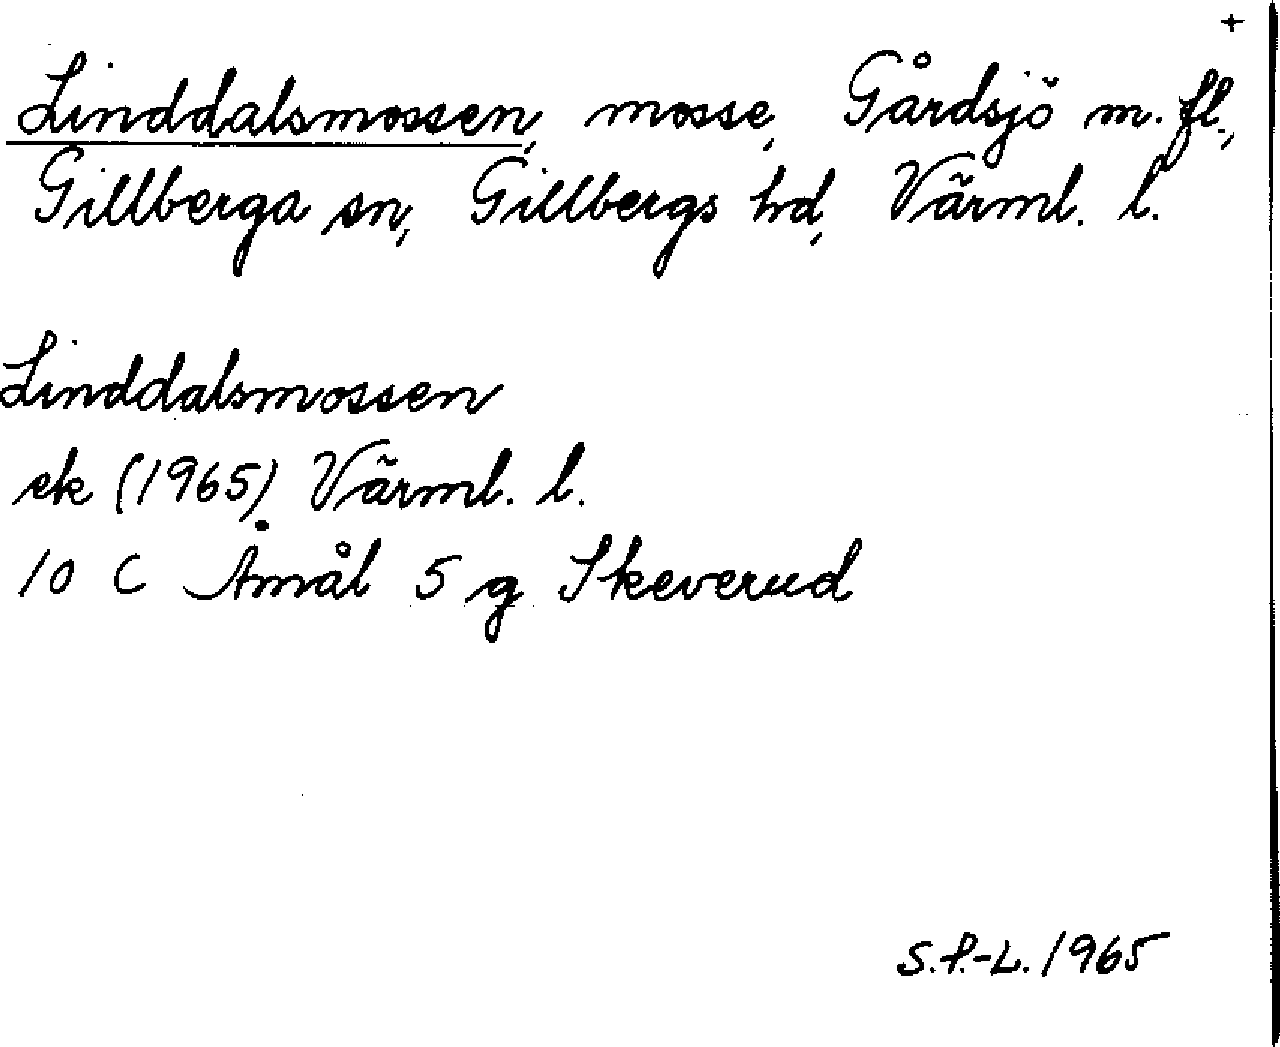 +
Linddalsmossen, mosse, Gårdsjö m. fl.,
Gillberga sn, Gillbergs hd, Värml. l.
Linddalsmossen
ek (1965) Värml. l.
10 C Åmål 5 g Skeverud
S.P.-L. 1965